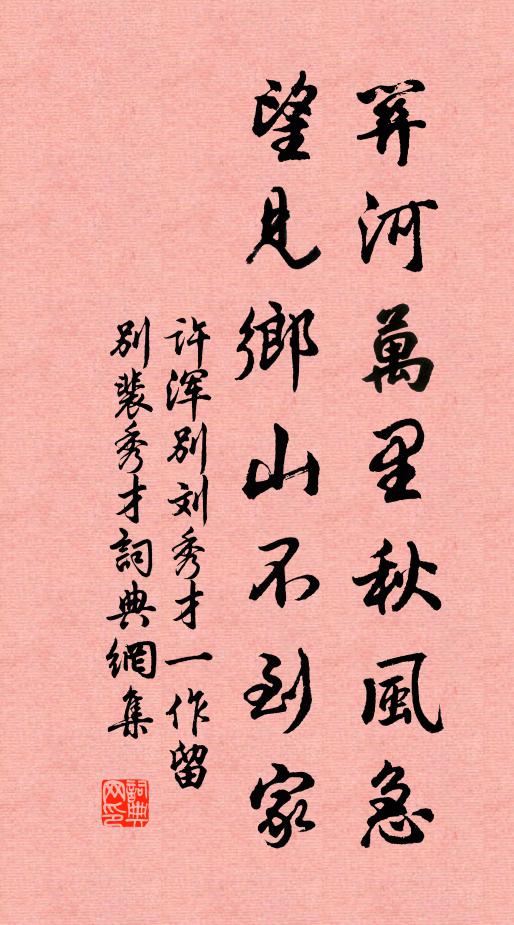 關河萬里秋風急
望見鄉山不到家
许浑别刘秀才一作留
别裴秀才詞典網集
詞典
网印